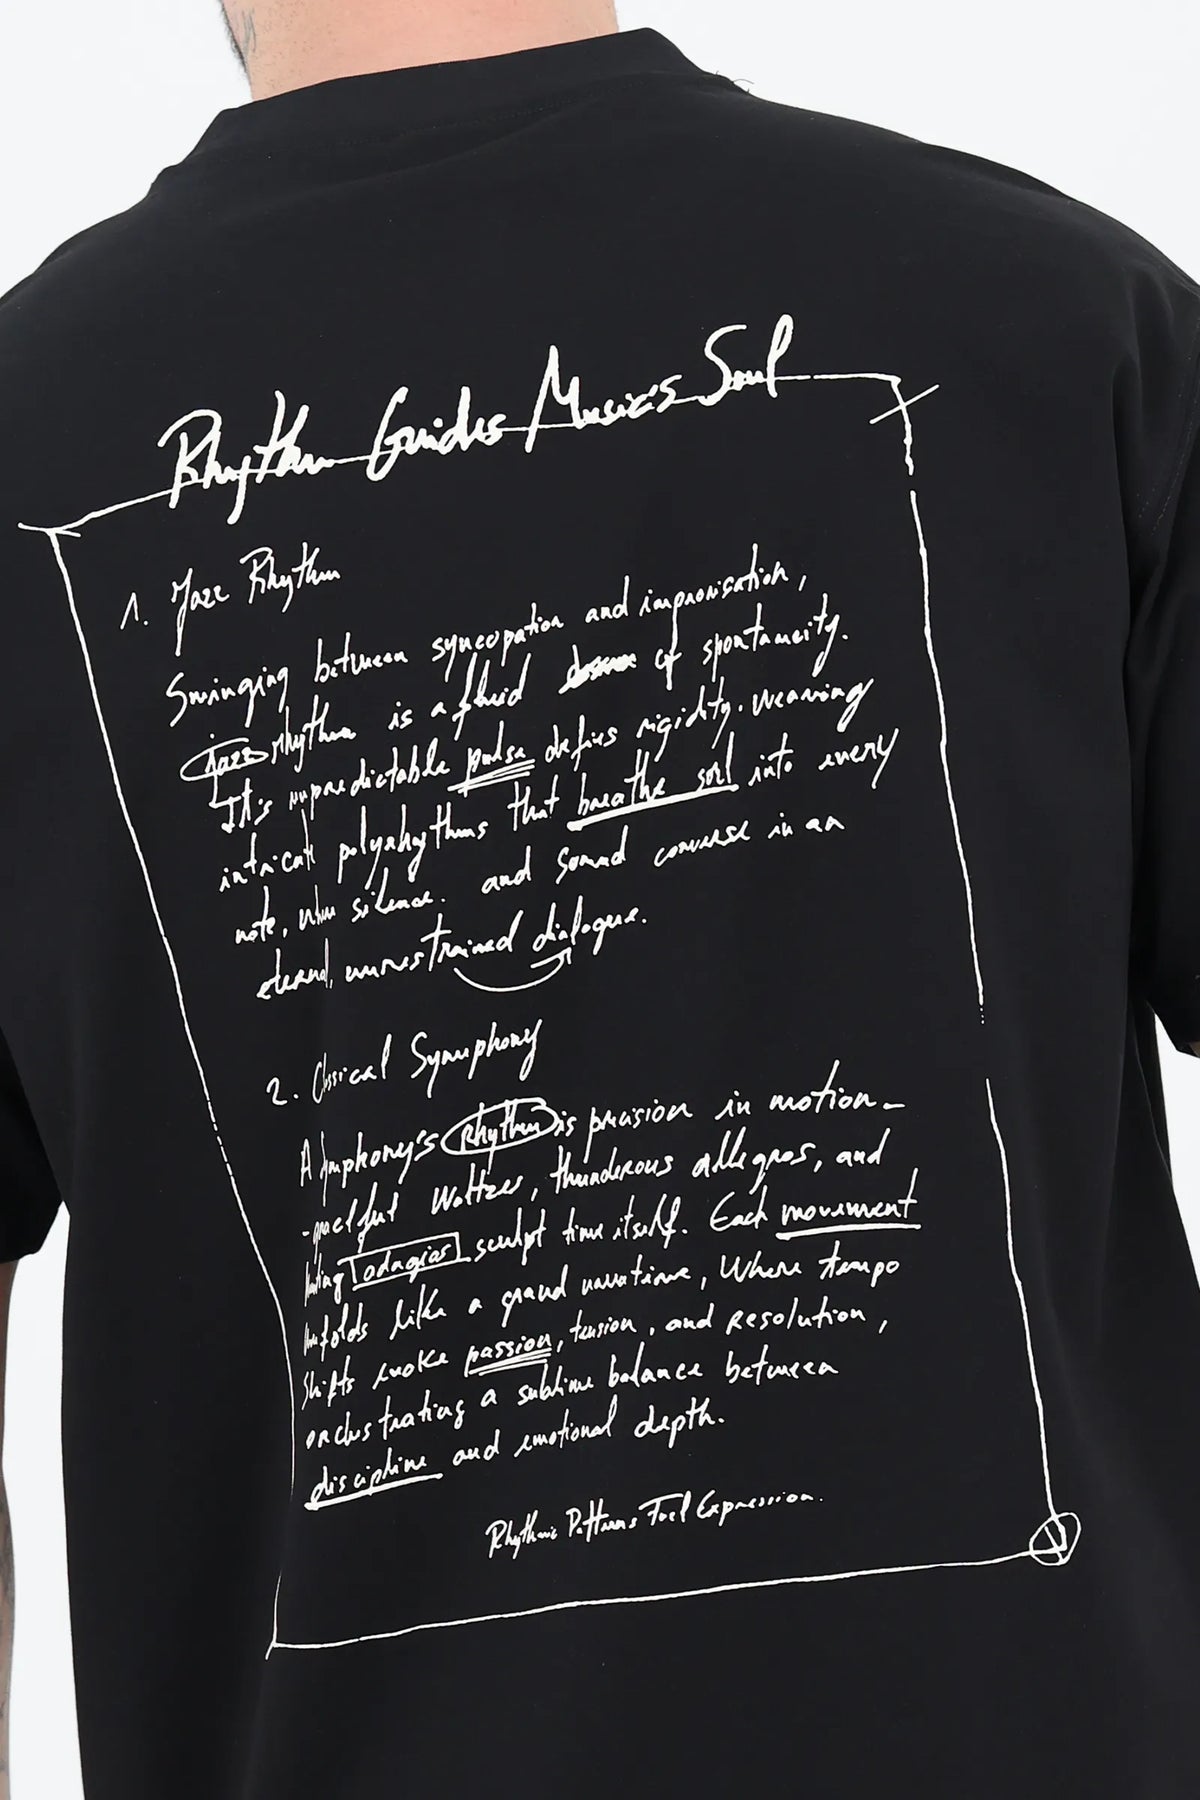 Rhythm Guides Music's Soul
1. Jazz Rhythm
Swinging between syncopation and improvisation,
jazz rhythm is a fluid of spontaneity.
It's unpredictable pulse defies rigidity. weaving
intricate polyrhythms that breathe soul into every
note, when silence. and sound converse in an
eternal, unrestrained dialogue.
2. Classical Symphony
A Symphony's rhythm is precision in motion-
-graceful waltzes, thunderous allegros, and
adagios sculpt time itself. Each movement
unfolds like a grand narrative, Where tempo
Shifts evoke passion, tension, and Resolution,
orchestrating a sublime balance between
discipline and emotional depth.
Rhythmic Patterns Fuel Expression.